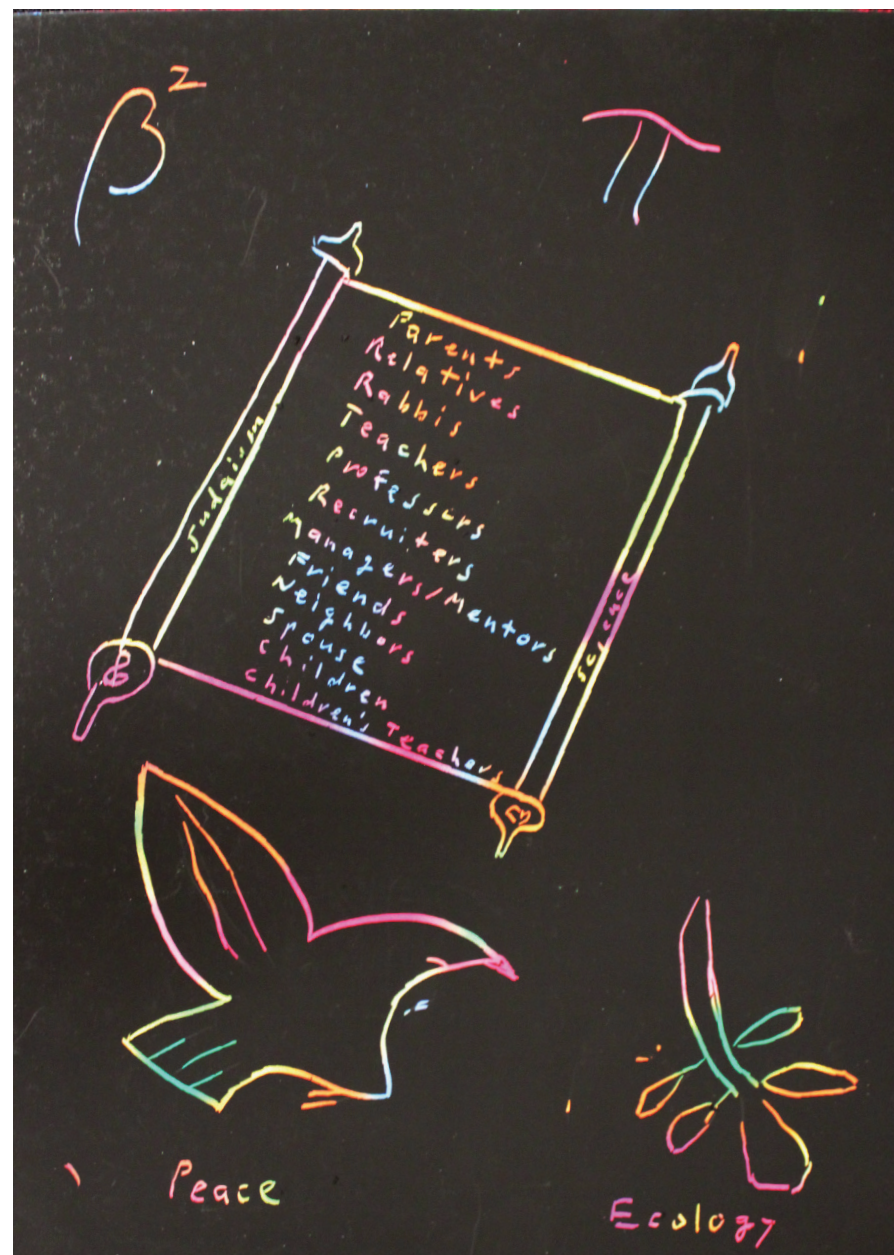 β²
π
Parents
Relatives
Rabbis
Teachers
Professors
Recruiters
Managers/Mentors
Friends
Neighbors
Spouse
Children
Children's Teachers
Judaism
Science
Peace
Ecology